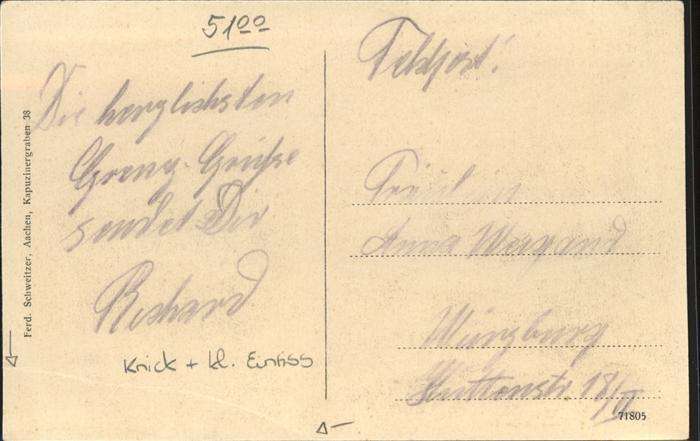 51⁰⁰
Die herzlichsten
Grenz-Grüße
sendet Dir
Richard
Knick + kl. Einriss
Ferd. Schweitzer, Aachen, Kapuzinergraben 38
Feldpost!
Fräulein
Anna Weigand
Würzburg
Huttenstr. 18/II
71805